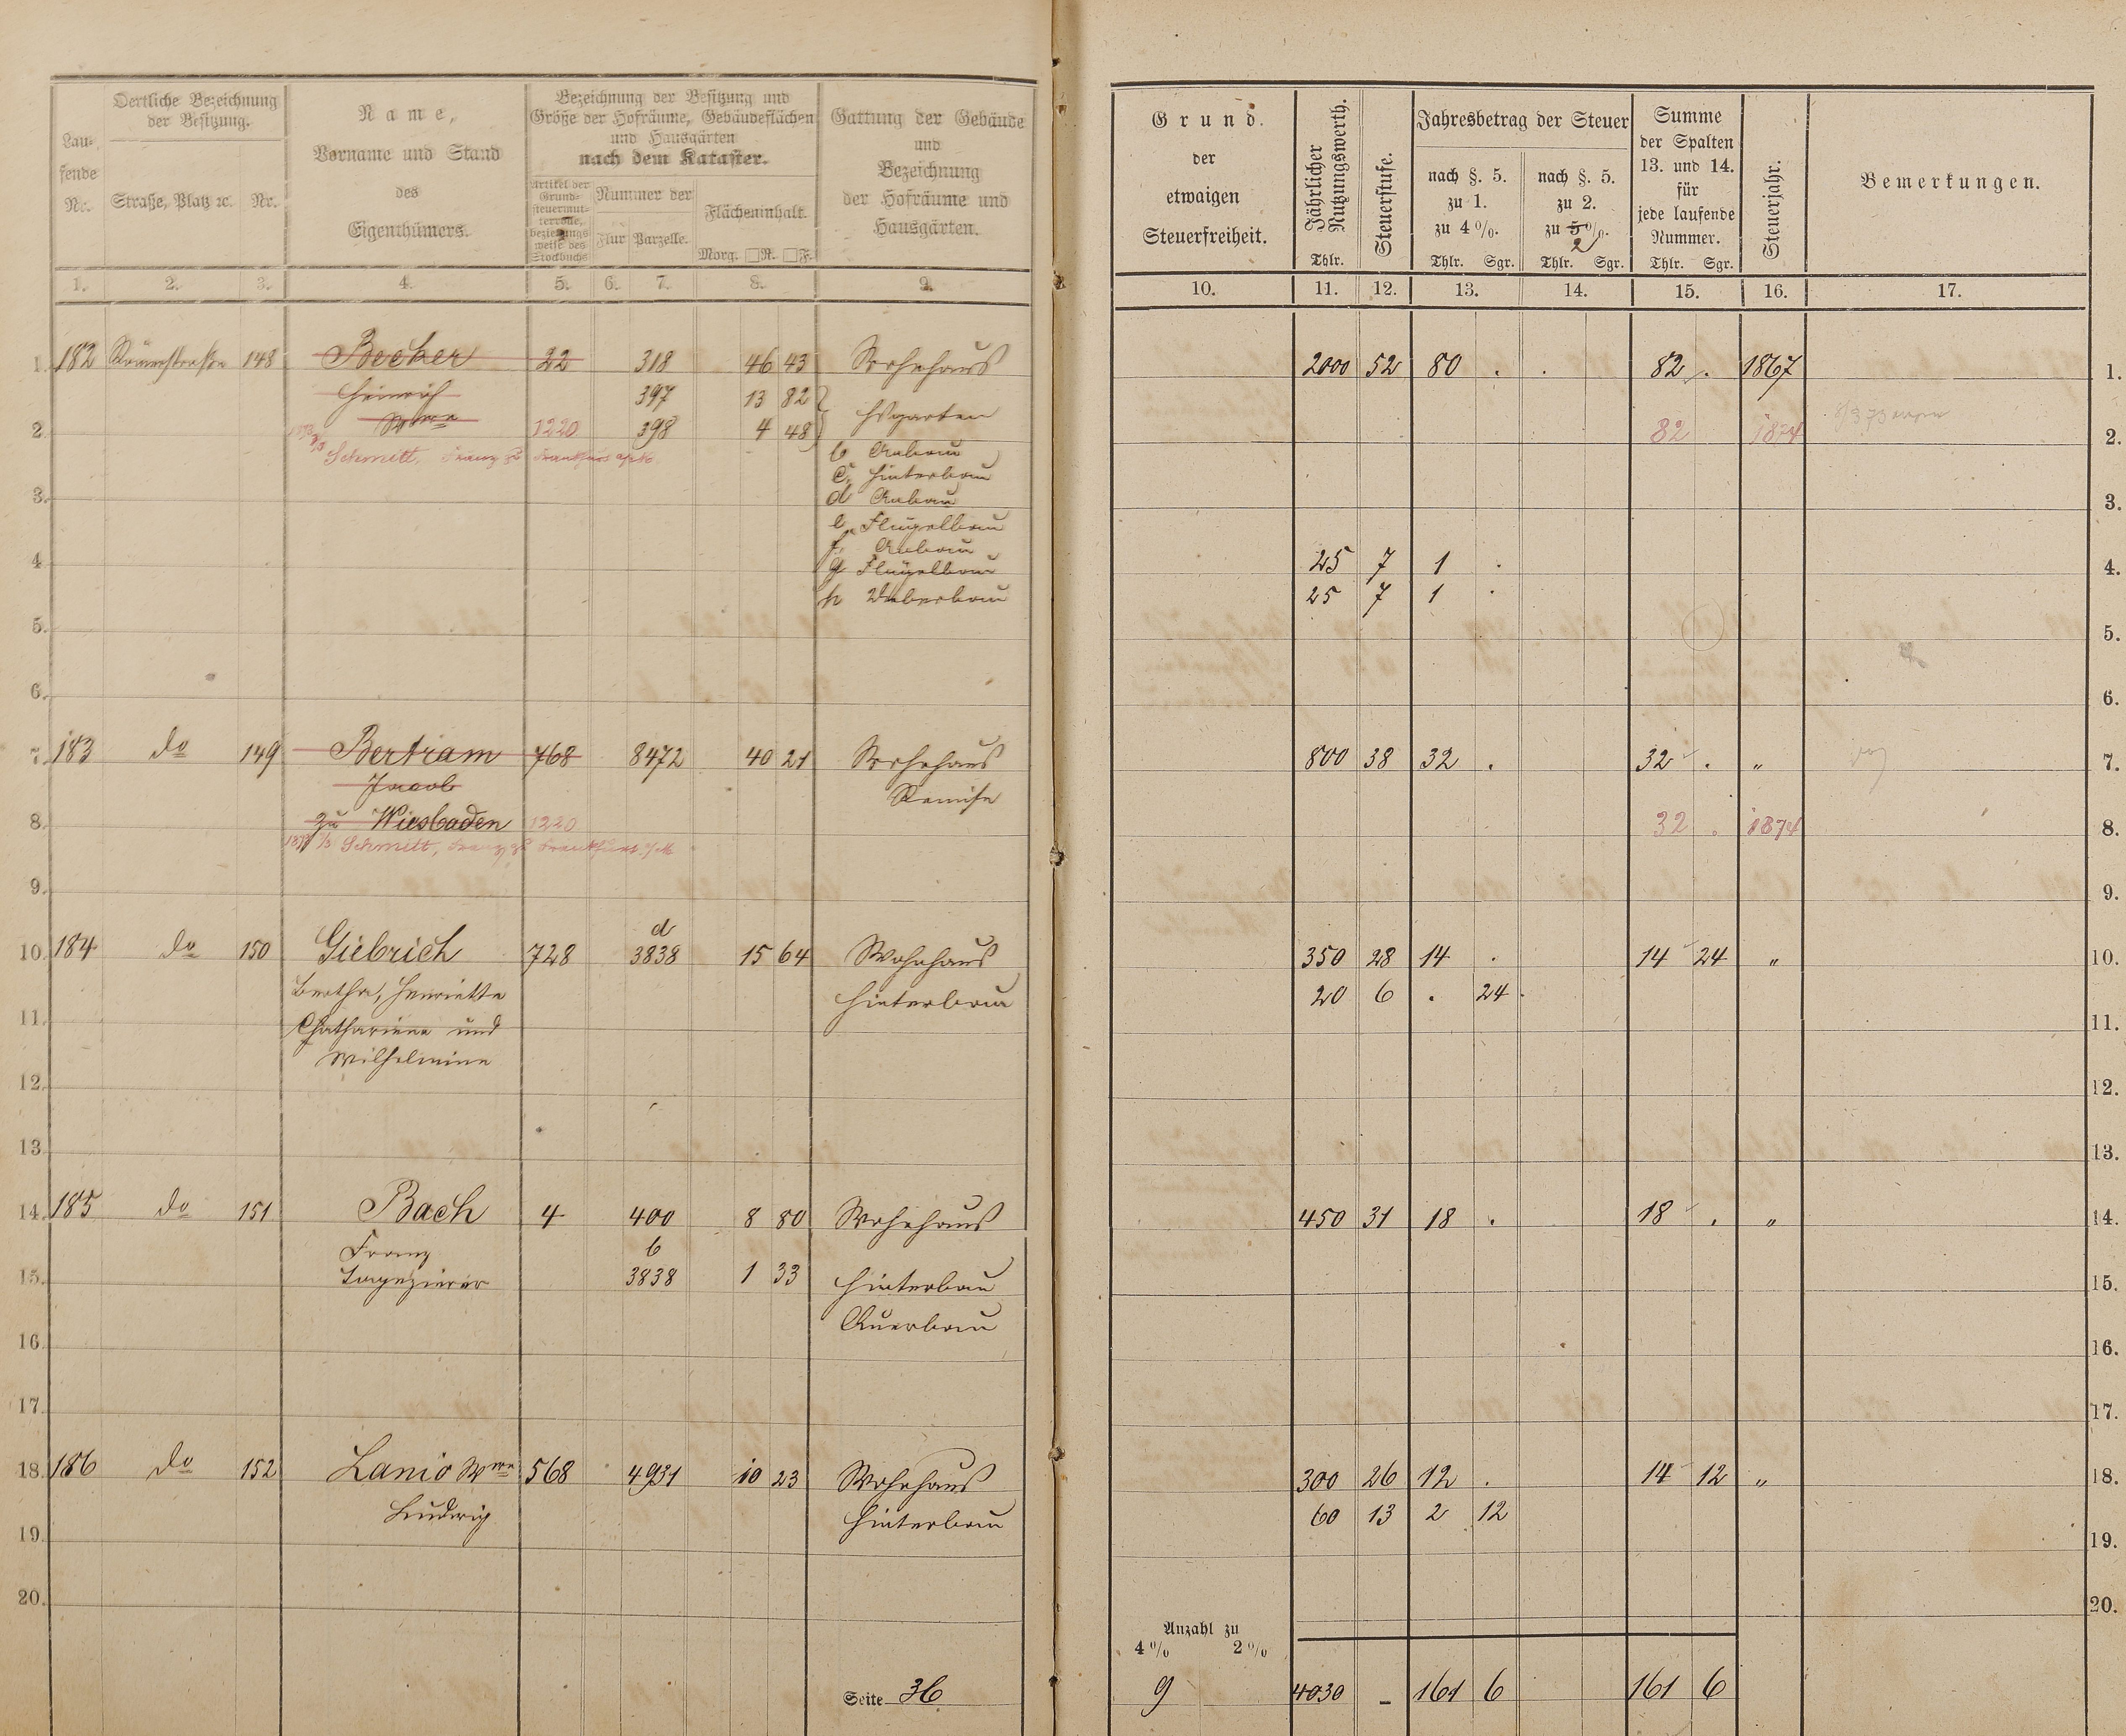 Lau-
fende
Nr.
Oertliche Bezeichnung
der Besitzung.
Straße, Platz ꝛc.
Nr.
Name,
Vorname und Stand
des
Eigenthümers.
Bezeichnung der Besitzung und
Größe der Hofräume, Gebäudeflächen
und Hausgärten
nach dem Kataster.
Artikel der
Grund-
steuermut-
terrolle,
beziehungs
weise des
Stockbuchs
Nummer der
Flur Parzelle.
Flächeninhalt.
Morg. □R. □F.
Gattung der Gebäude
und
Bezeichnung
der Hofräume und
Hausgärten.
Grund.
der
etwaigen
Steuerfreiheit.
Jährlicher
Nutzungswerth.
Thlr.
Steuerstufe.
Jahresbetrag der Steuer
nach §. 5.
zu 1.
zu 4 %.
Thlr. Sgr.
nach §. 5.
zu 2.
zu 5 %.
2
Thlr. Sgr.
Summe
der Spalten
13. und 14.
für
jede laufende
Nummer.
Thlr. Sgr.
Steuerjahr.
Bemerkungen.
1. 2. 3. 4. 5. 6. 7. 8. 9. 10. 11. 12. 13. 14. 15. 16. 17.
1. 182 148 Becker 22 318 46 43 Wohnhaus 2000 52 80 . . 82 . 1867 1.
Heinrich 397 13 82
Wwe 398 4 48 Hsgarten
2. 1220 82 1874 2.
Schmitt, Franz zu Frankfurt a/M
b Anbau
c. Hinterbau
3. d Anbau 3.
e Flügelbau
f. Anbau
4. g Flügelbau 25 7 1 . 4.
h Ueberbau 25 7 1 .
5. 5.
6. 6.
7. 183 do 149 Bertram 768 8472 40 21 Wohnhaus 800 38 32 . 32 . „ 7.
Jacob Remise
8. zu Wiesbaden 1220 32 . 1874 8.
Schmitt, Franz zu Frankfurt a/M
9. 9.
d
10. 184 do 150 Giebrich 728 3838 15 64 Wohnhaus 350 28 14 . 14 24 „ 10.
Bertha, Henriette Hinterbau 20 6 . 24
11. Chatharine und 11.
Wilhelmine
12. 12.
13. 13.
14. 185 do 151 Bach 4 400 8 80 Wohnhaus 450 31 18 . 18 . „ 14.
Franz b
15. Tapezierer 3838 1 33 Hinterbau 15.
Querbau
16. 16.
17. 17.
18. 186 do 152 Lanio Wwe 568 4931 10 23 Wohnhaus 300 26 12 . 14 12 „ 18.
Ludwig Hinterbau 60 13 2 12
19. 19.
20. 20.
Anzahl zu
4 % 2 %
Seite 36 9 4030 – 161 6 161 6